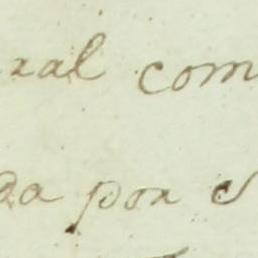 ral com
da por